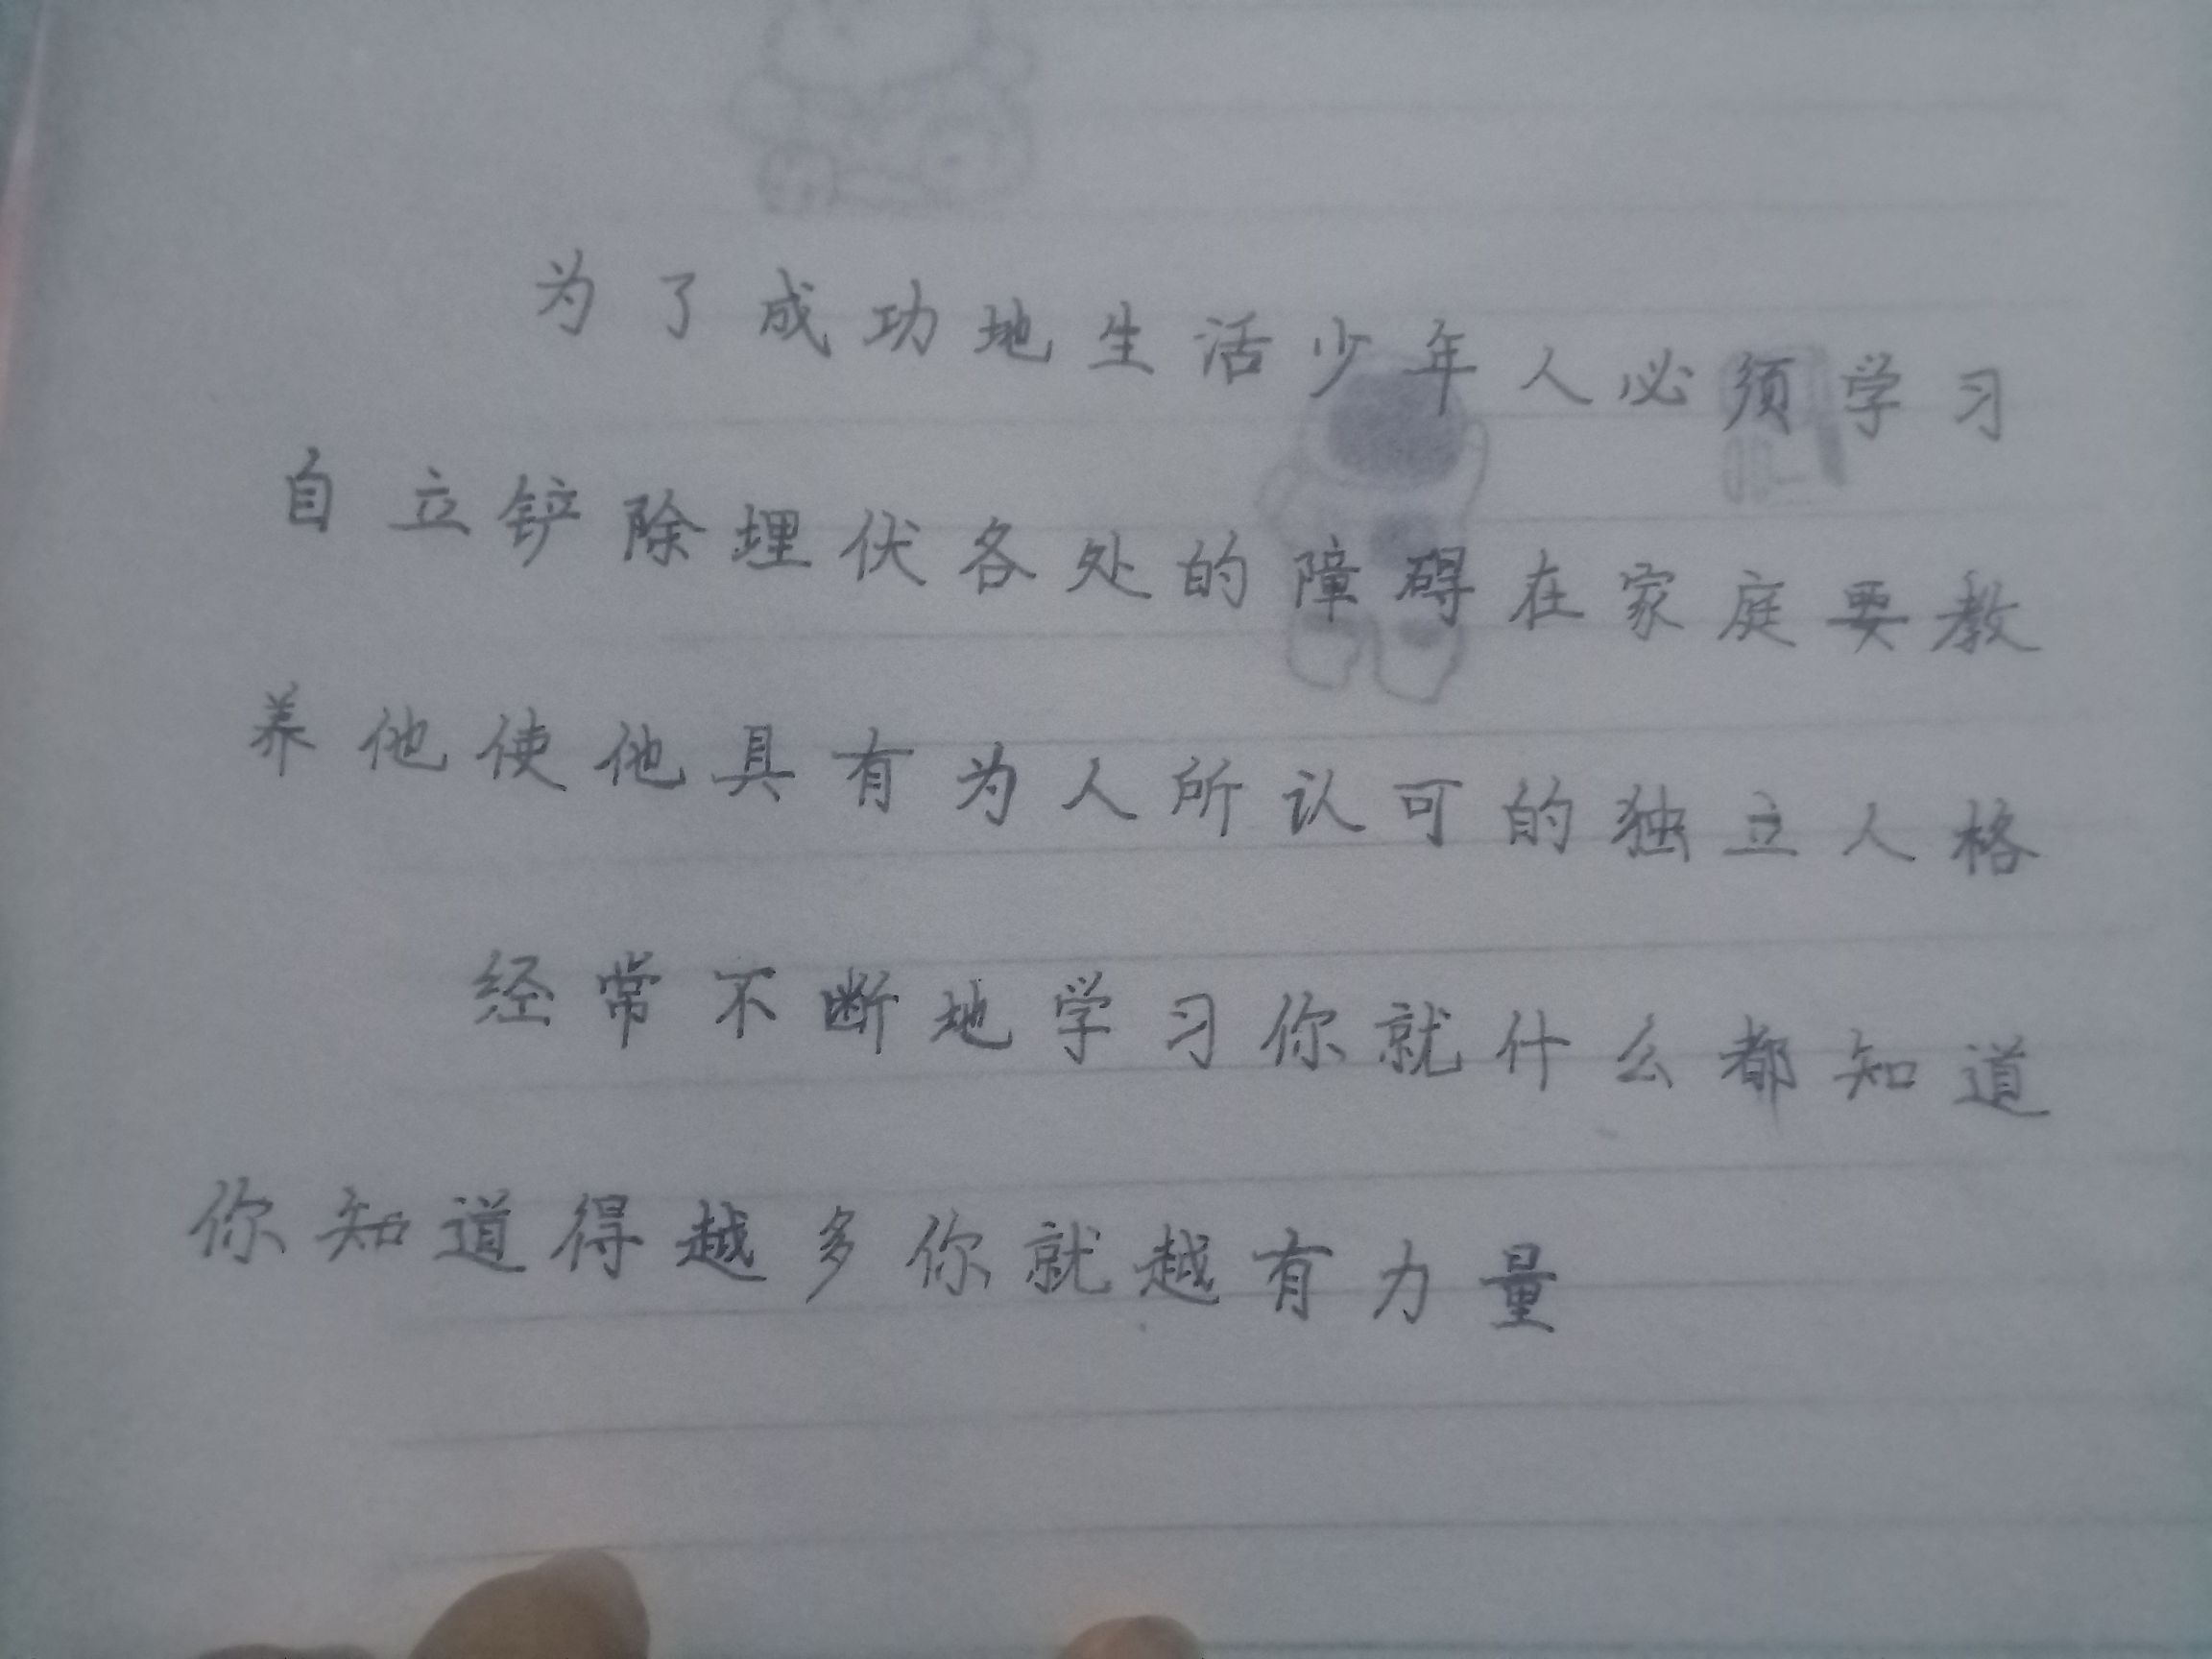 为了成功地生活少年人必须学习
自立铲除埋伏各处的障碍在家庭要教
养他使他具有为人所认可的独立人格
经常不断地学习你就什么都知道
你知道得越多你就越有力量